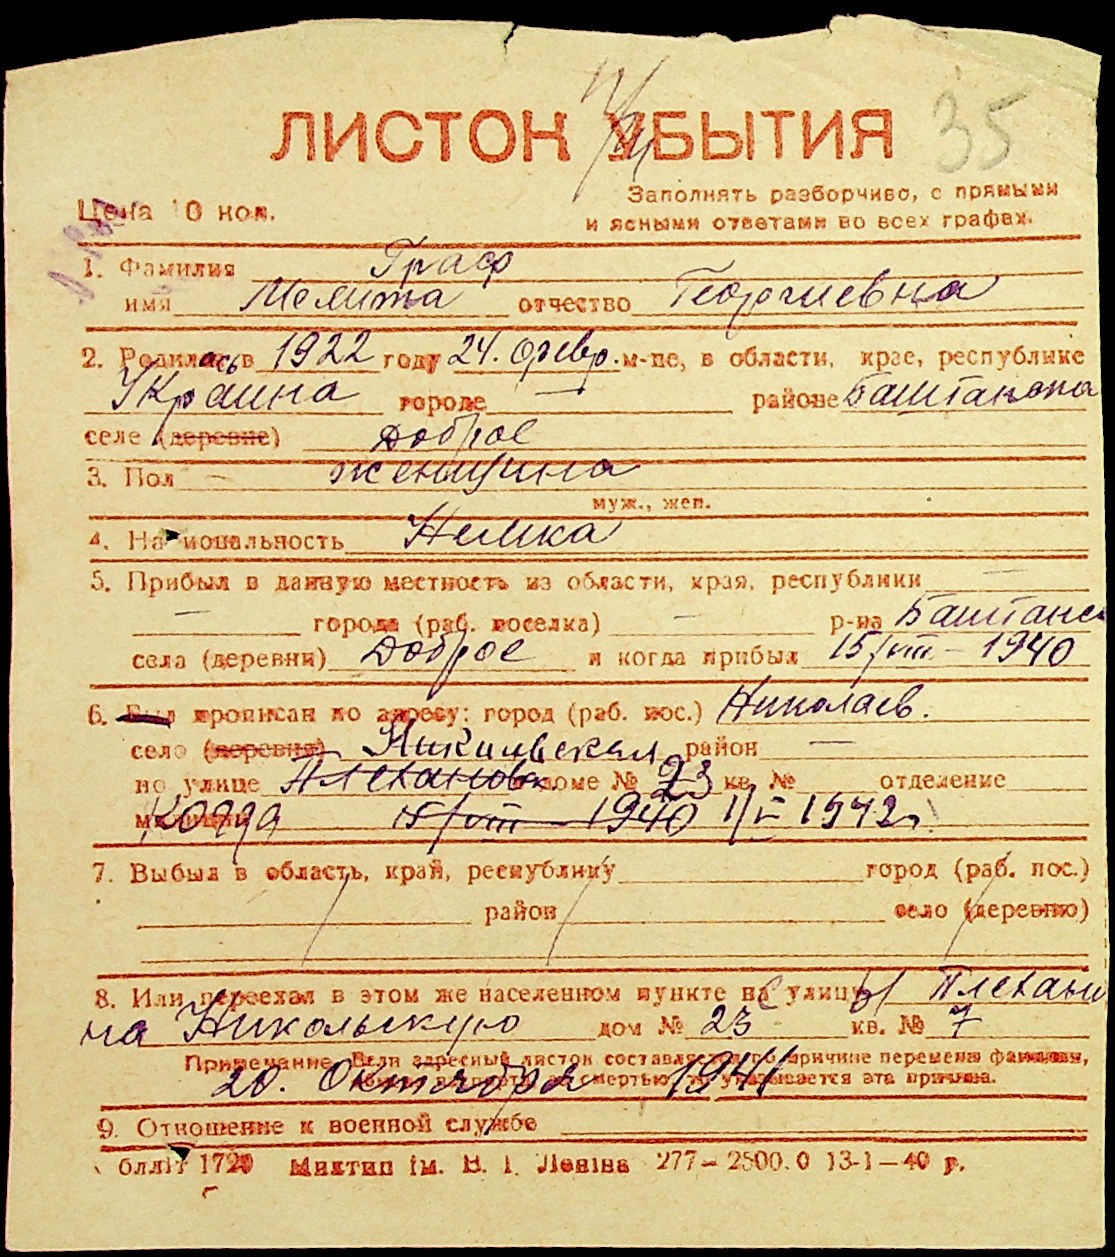 ЛИСТОК УБЫТИЯ
35
Цена 10 коп.
Заполнять разборчиво, с прямыми
и ясными ответами во всех графах.
1. Фамилия Граф
имя Мелита отчество Георгиевна
2. Родилась в 1922 году 24. февр. м-це, в области, крае, республике
Украина городе — районе Баштанска
селе (деревне) Доброе
3. Пол женщина
муж., жен.
4. Национальность Немка
5. Прибыл в данную местность из области, края, республики —
— города (раб. поселка) — р-на Баштанск
села (деревни) Доброе и когда прибыл 15/VIII - 1940
6. Был прописан по адресу: город (раб. пос.) Николаев.
село (деревня) Никольская район —
по улице Плеханова доме № 23 кв. № отделение
милиции Когда 15/VIII - 1940 1/I 1942г.
7. Выбыл в область, край, республику город (раб. пос.)
район село (деревню)
8. Или переехал в этом же населенном пункте на улицу Плехани
на Никольскую дом № 23 кв. № 7
Примечание. Если адресный листок составляется по причине перемены фамилии,
смертью, то указывается эта причина.
20. Октября 1941
9. Отношение к военной службе
обллiт 1720 Миктип iм. В. I. Ленiна 277 — 2500.0 13-1—40 р.